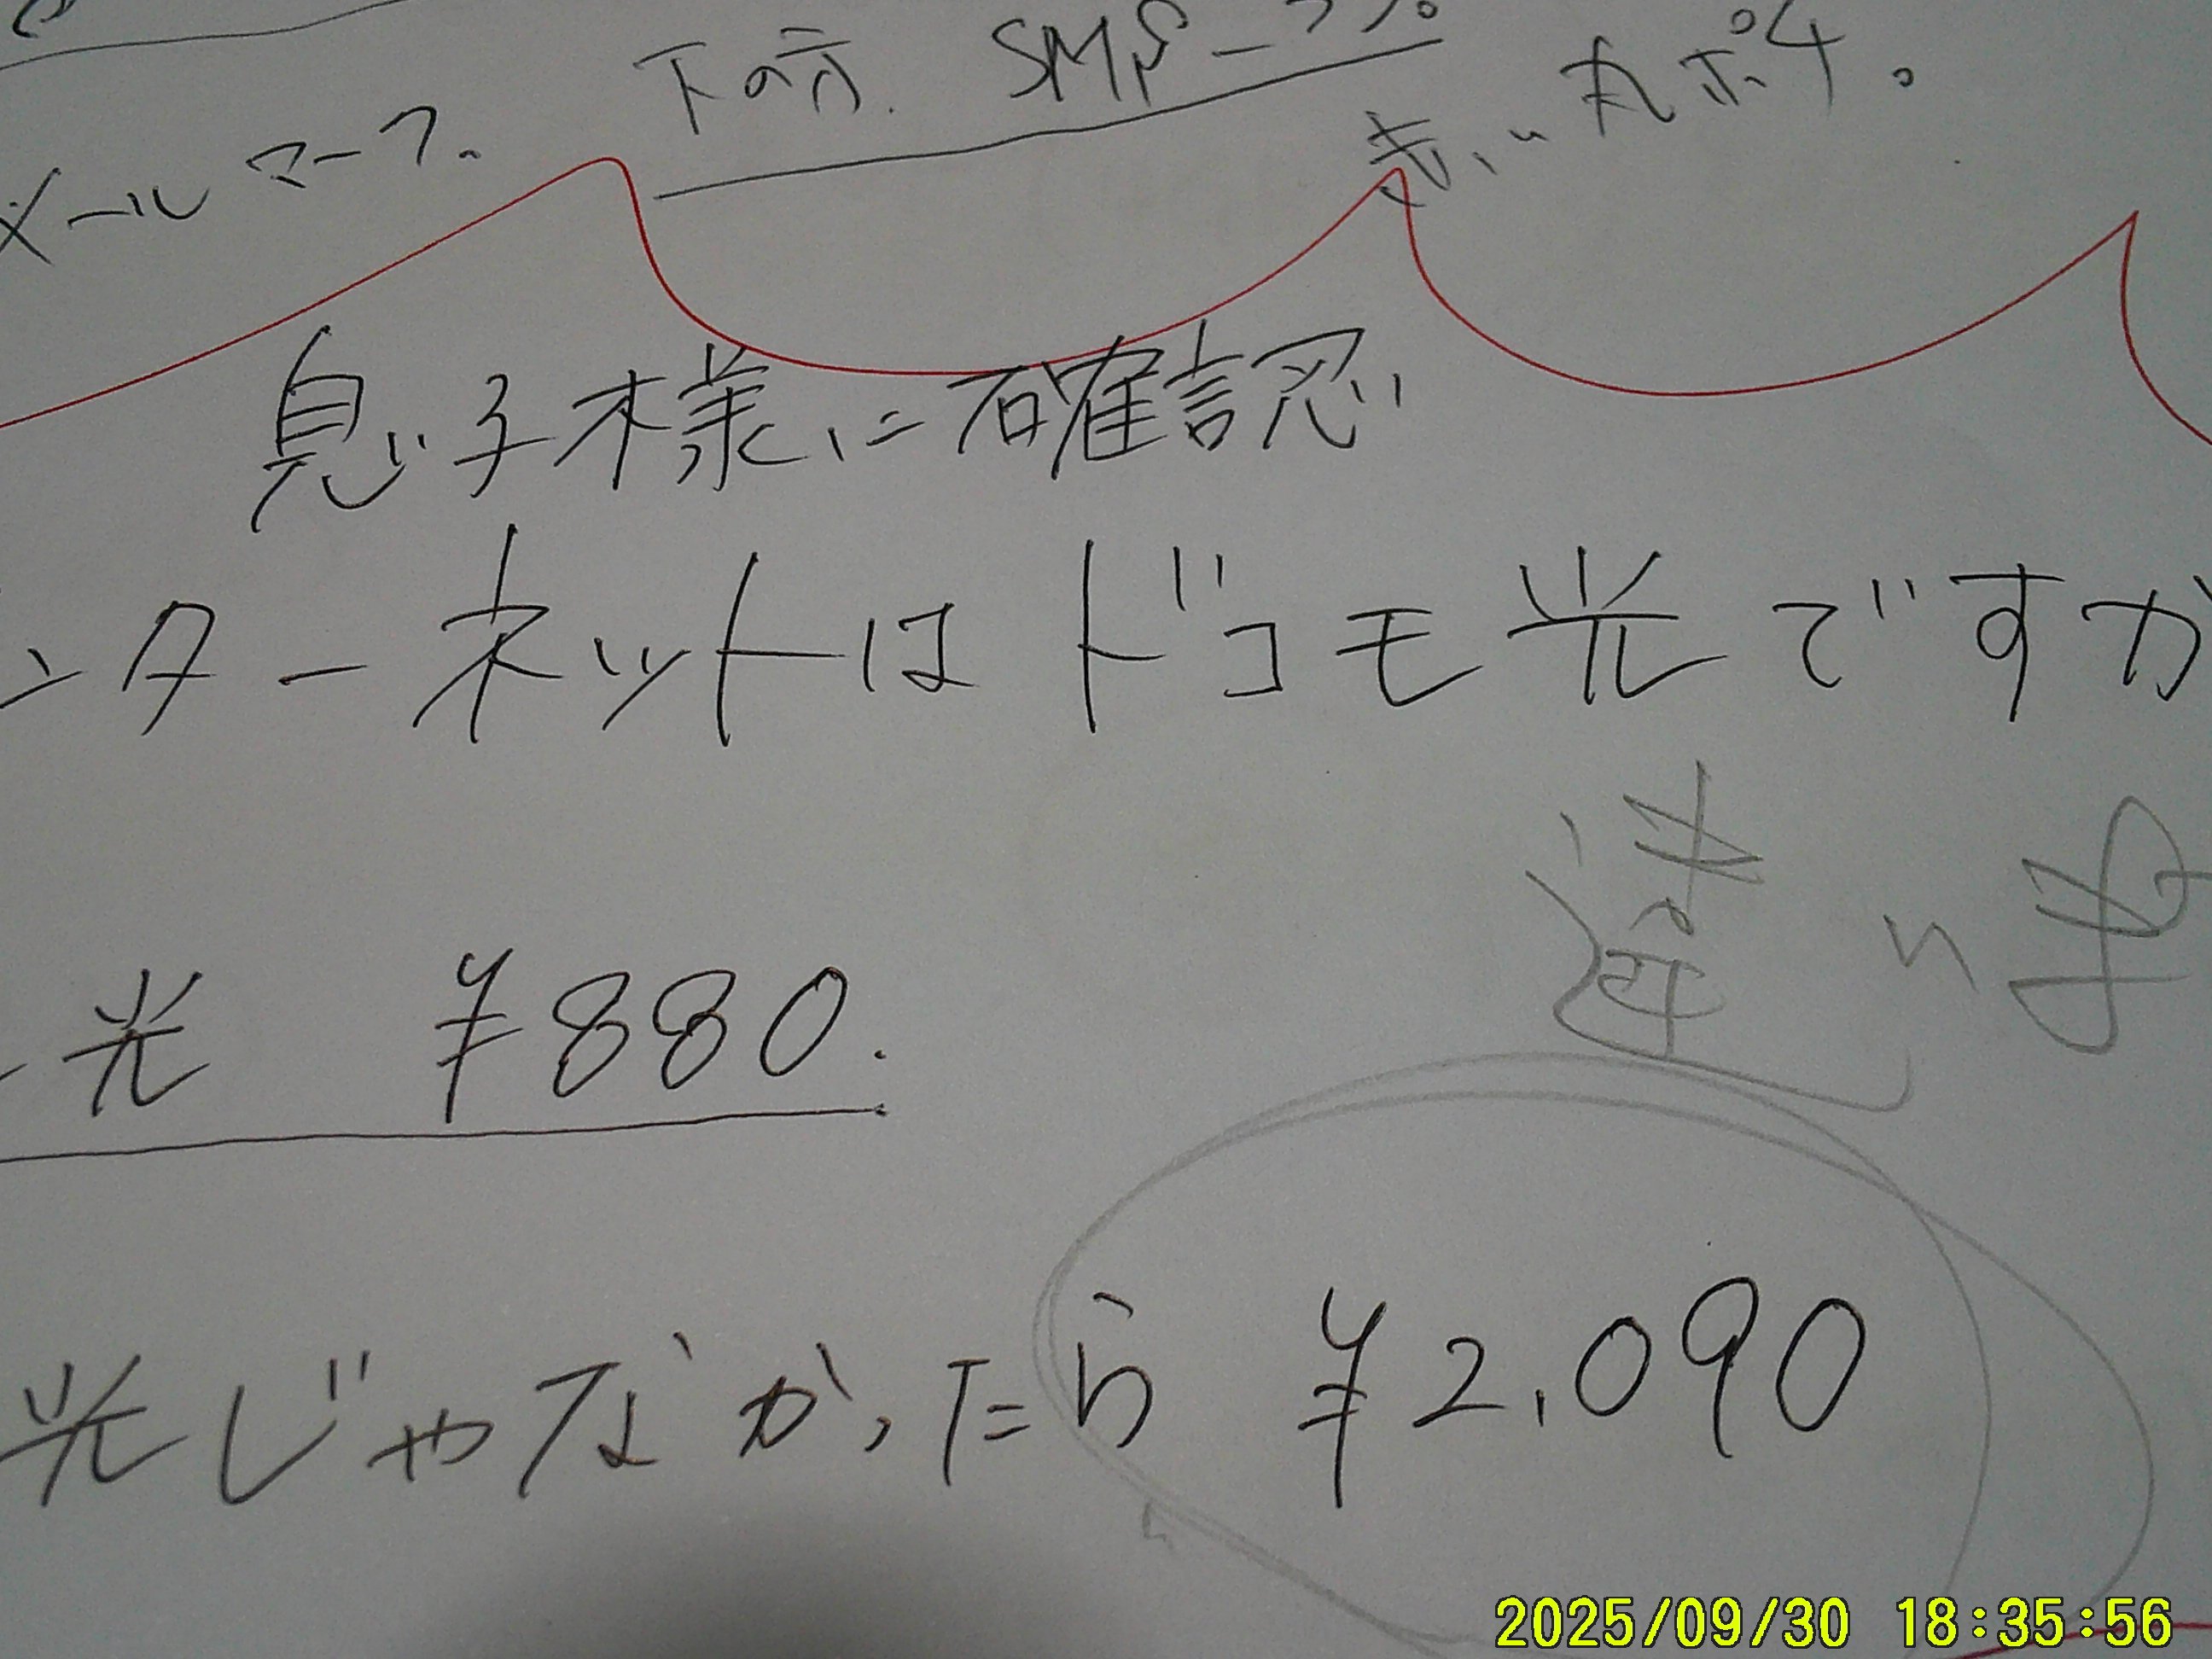 下の方
赤い丸ポチ。
メールマーク.
息子様に確認
ンターネットはドコモ光ですか
違い
光 ¥880.
光じゃなかったら ¥2,090
2025/09/30 18:35:56